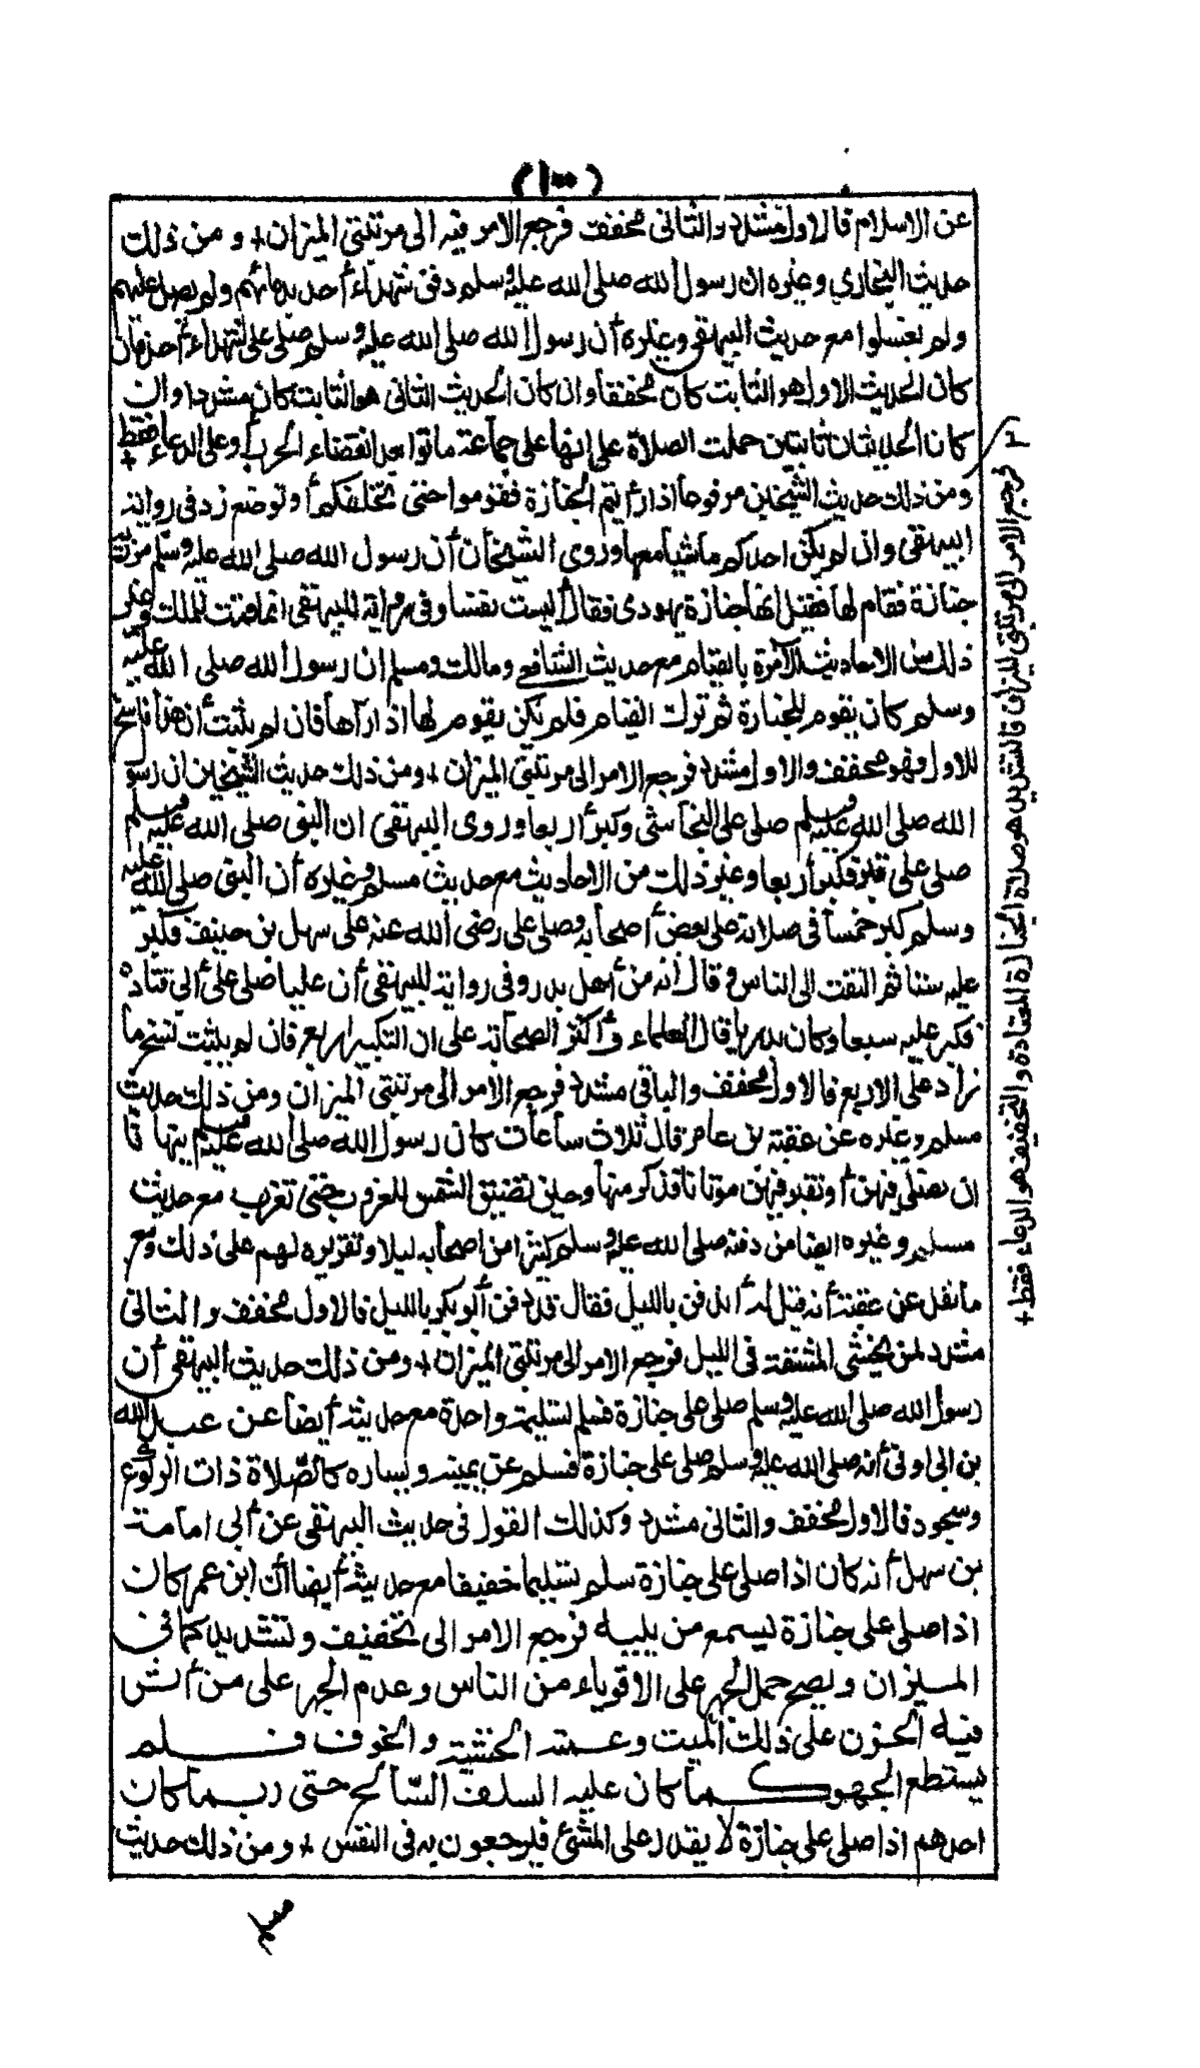 (١٠٠)
عن الاسلام فالاول مشدد والثانى مخفف فرجع الامر فيه الى مرتبتى الميزان + ومن ذلك
حديث البخاري وغيره ان رسول الله صلى الله عليه وسلم دفن شهداء أحد بدمائهم ولم يصل عليهم
ولم يغسلوا مع حديث البيهقى وغيره أن رسول الله صلى الله عليه وسلم صلى على شهداء أحد فان
كان الحديث الاول هو الثابت كان مخففا وان كان الحديث الثانى هو الثابت كان مشددا وان
كان الحديثان ثابتين حملت الصلاة على انها على جماعة ماتوا بعد انقضاء الحرب أو على الدعاء فقط +
ومن ذلك حديث الشيخين مرفوعا اذا رأيتم الجنازة فقوموا حتى تخلفكم أو توضع زد فى رواية
البيهقى وان لم يكن احدكم ماشيا معها وروى الشيخان أن رسول الله صلى الله عليه وسلم مرت
جنازة فقام لها فقيل انها جنازة يهودى فقال أليست نفسا وفى رواية للبيهقى انما قمت للملك وغير
ذلك من الاحاديث الآمرة بالقيام مع حديث الشافعى ومالك ومسلم ان رسول الله صلى الله عليه
وسلم كان يقوم للجنازة ثم ترك القيام فلم يكن يقوم لها اذا رآها فان لم يثبت أن هذا ناسخ
للاول فهو مخفف والاول مشدد فرجع الامر الى مرتبتى الميزان + ومن ذلك حديث الشيخين ان رسو
الله صلى الله عليه وسلم صلى على النجاشى وكبر أربعا وروى البيهقى ان النبى صلى الله عليه وسلم
صلى على قبر فكبر أربعا وغير ذلك من الاحاديث مع حديث مسلم وغيره أن النبى صلى الله عليه
وسلم كبر خمسا فى صلاته على بعض أصحابه وصلى على رضى الله عنه على سهل بن حنيف فكبر
عليه ستا ثم التفت الى الناس وقال انه من أهل بدر وفى رواية للبيهقى أن عليا صلى على أبى قتادة
فكبر عليه سبعا وكان بدريا قال العلماء وأكثر الصحابة على ان التكبير اربع فان لم يثبت نسخ ما
زاد على الاربع فالاول مخفف والباقى مشدد فرجع الامر الى مرتبتى الميزان ومن ذلك حديث
مسلم وغيره عن عقبة بن عامر قال ثلاث ساعات كان رسول الله صلى الله عليه وسلم ينها نا
ان نصلى فيهن أو نقبر فيهن موتانا فذكر منها وحين تضيق الشمس للغروب حتى تغرب مع حديث
مسلم وغيره ايضا من دفنه صلى الله عليه وسلم كثيرا من اصحابه ليلا وتقريره لهم على ذلك ومع
ما نقل عن عقبة أنه قيل له أندفن بالليل فقال قد دفن أبو بكر بالليل فالاول مخفف والثانى
مشدد لمن يخشى المشقة فى الليل فرجع الامر الى مرتبتى الميزان + ومن ذلك حديث البيهقى أن
رسول الله صلى الله عليه وسلم صلى على جنازة فسلم تسليمة واحدة مع حديثه أيضا عن عبد الله
بن ابى اوفى أنه صلى الله عليه وسلم صلى على جنازة فسلم عن يمينه ويساره كالصلاة ذات الركوع
وسجود فالاول مخفف والثانى مشدد وكذلك القول فى حديث البيهقى عن أبى امامة
بن سهل أنه كان اذا صلى على جنازة سلم تسليما خفيفا مع حديثه أيضا أن ابن عمر كان
اذا صلى على جنازة يسمع من يليه فرجع الامر الى تخفيف وتشديد كما فى
الميزان ويصح حمل الجهر على الاقوياء من الناس وعدم الجهر على من أثر
فيه الحزن على ذلك الميت وعمته الخشية والخوف فلم
يستطع الجهر كما كان عليه السلف الصالح حتى ربما كان
احدهم اذا صلى على جنازة لا يقدر على المشى فيرجعون به فى النفس + ومن ذلك حديث
مسلم
٢ فرجع الامر الى مرتبتى الميزان فالتشديد هو صلاة الجنازة المعتادة والتخفيف هو الدعاء فقط +